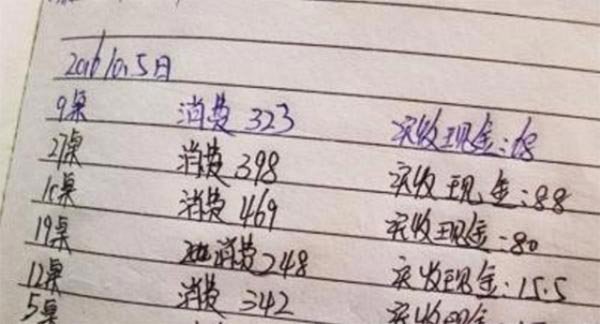 2016 10.5日
9桌 消费 323 实收现金:68
27桌 消费 398 实收现金:88
消费 469 实收现金:80
19桌 消费248 实收现金:15.5
12桌 消费 342 实收现金
5桌